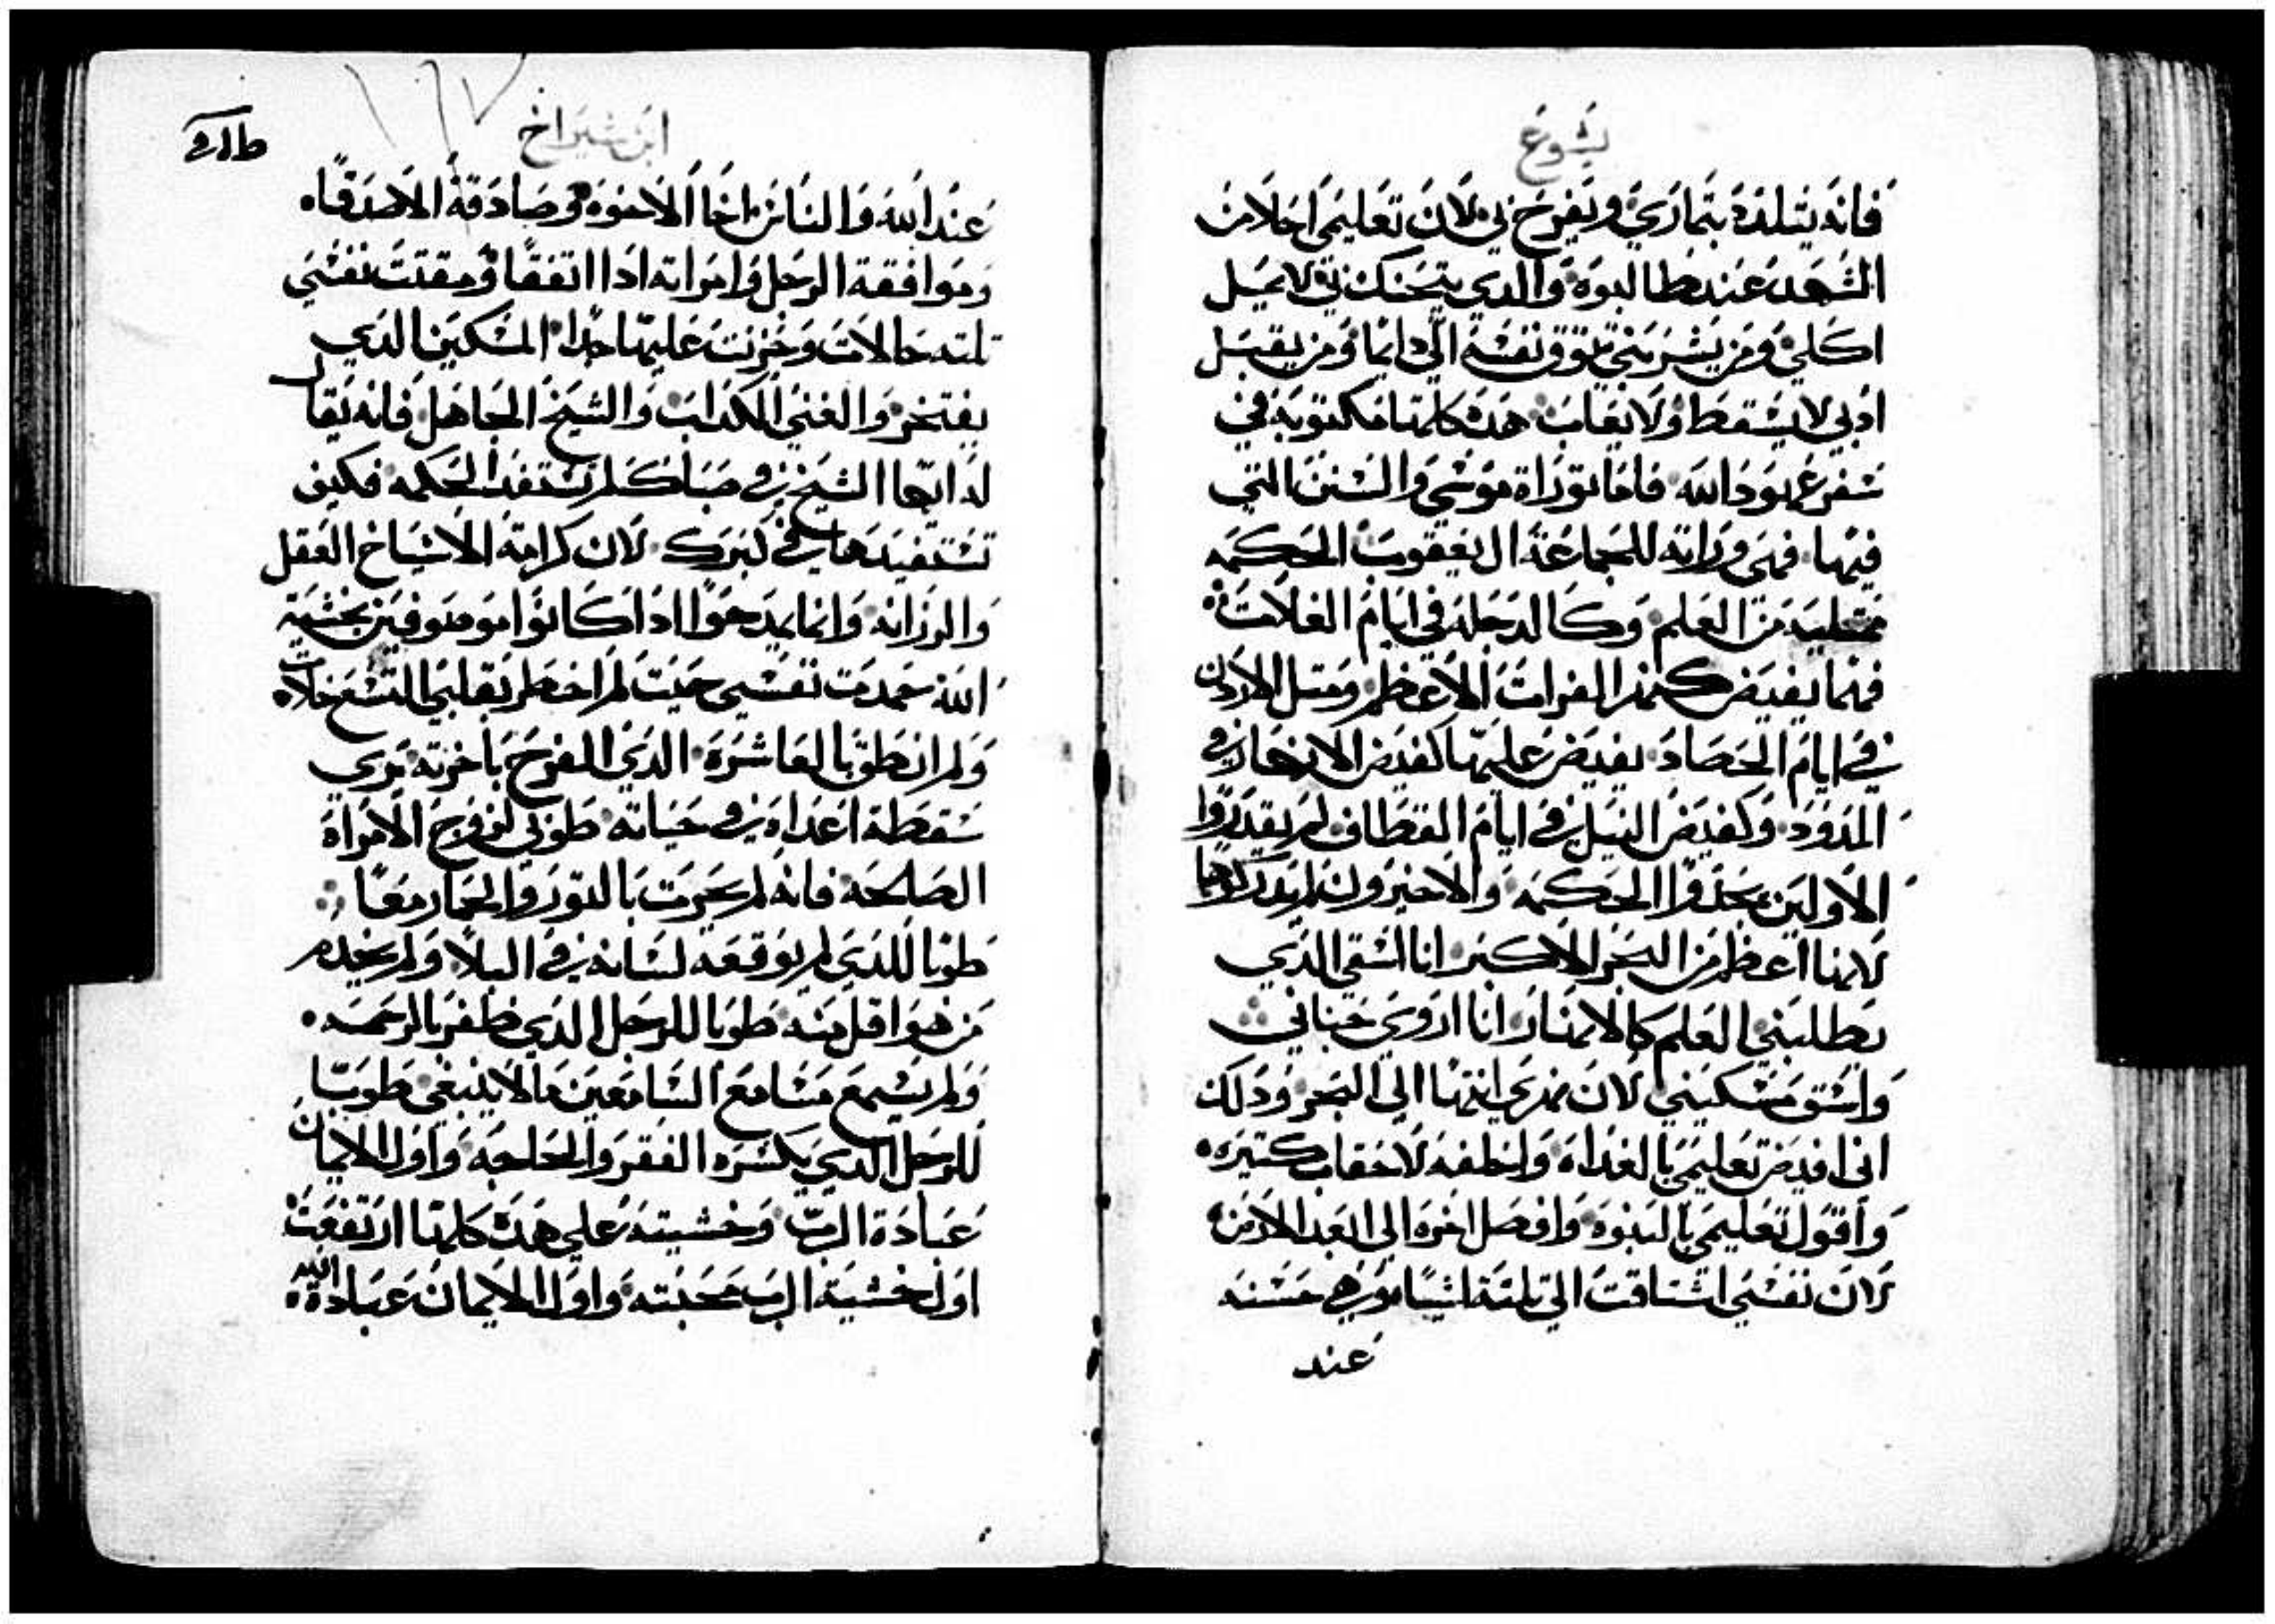 يشوع
فانه يتلذذ بثماري ويفرح بي لان تعليمي احلا من
الشهد عند طالبوه والدي يتحنك بي لا يميل
اكلي ومن يشربني تتوق نفسه الي دايما ومن يقبل
ادبي لا يسقط ولا يعاب هده كلها مكتوبة في
سفر عهود الله فاما توراة موسي والسنن التي
فيها فهي وراته للجماعة ال يعقوب الحكمه
ممتليه من العلم وكالدجله في ايام الغلات
فهما يفيض كنهر الفرات الاعظم ومتل الاردن
في ايام الحصاد يفيض عليها كفيض الانهار في
المدود وكفيض النيل في ايام القطاف لم يقدروا
الاولين يحدوا الحكمه والاخيرون لم يدركوها
لانها اعظم من البحر الاكبر انا اسقي الدي
يطلبني العلم كالانهار انا اروي جناني
واسق مسكبتي لان نهري انتها الي البحر ودلك
اني افيض تعليمي بالغداه واخلفه لاحقاب كتيره
واقول تعليمي بالنبوه وافصل اخره الي ابعد الازمنه
لان نفسي اشتاقت الي تلتة اشيا وهي حسنه
عند
ابن شيراخ
عند الله والناس اخا الاخوه وصادقة الاصدقا
وموافقة الرجل وامراته ادا اتفقا ومقتت نفسي
تلته حالات وحزنت عليها جدا المسكين الدي
يفتخر والغني الكداب والشيخ الجاهل فانه يقال
له ايها الشيخ في صباك لم تستفد الحكمه فكيف
تستفيدها في كبرك لان كرامة الاشياخ العقل
والرزانه وانما يمدحوا ادا كانوا موصوفين بخشية
الله حمدت نفسي حيت لم اخطر بقلبي التسع خلات
ولم انطق بالعاشره الدي الفرح باخرته يري
سقطة اعداه في حياته طوبي لزوج الامراة
الصالحه فانه لم يحرت بالتور والحمار معا
طوبا للدي لم يوقعه لسانه في البلا ولم يخدم
من هو اقل منه طوبا للرجل الدي ظفر بالرحمه
ولم يسمع مسامع السامعين ما لا ينبغي طوبا
للرجل الدي يكسره الفقر والحاجه واول الايمان
عبادة الرب وخشيته علي هده كلها ارتفعت
اول خشية الرب محبته واول الايمان عبادة الله